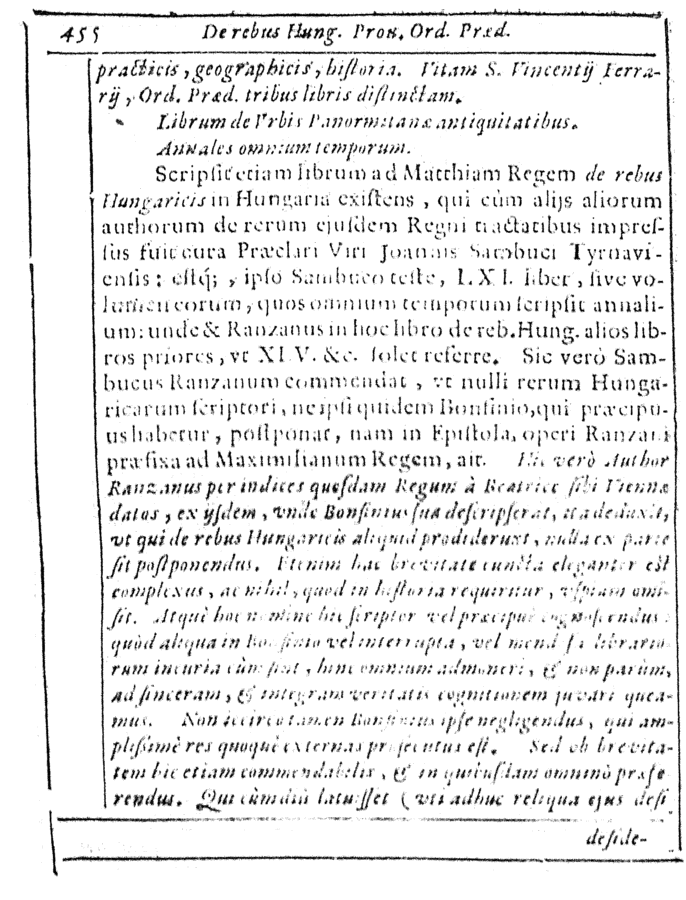 455 De rebus Hung. Prov. Ord. Præd.
practicis, geographicis, historia. Vitam S. Vincentij Ferra-
rij, Ord. Præd. tribus libris distinctam.
Librum de Vrbis Panormitanæ antiquitatibus.
Annales omnium temporum.
Scripsit etiam librum ad Matthiam Regem de rebus
Hungaricis in Hungaria existens, qui cùm alijs aliorum
authorum de rerum ejusdem Regni tractatibus impres-
sus fuit cura Præclari Viri Joannis Sambuci Tyrnavi-
ensis: estq́;, ipso Sambuco teste, LXI. liber, sive vo-
lumen eorum, quos omnium temporum scripsit annali-
um: unde & Ranzanus in hoc libro de reb. Hung. alios lib-
ros priores, vt XLV. &c. solet referre. Sic verò Sam-
bucus Ranzanum commendat, vt nulli rerum Hunga-
ricarum scriptori, ne ipsi quidem Bonfinio, qui præcipu-
us habetur, postponat, nam in Epistola, operi Ranzani
præfixa ad Maximilianum Regem, ait. Hic verò Author
Ranzanus per indices quosdam Regum à Beatrice sibi Viennæ
datos, ex ijsdem, vnde Bonfinius sua descripserat, ita deduxit,
vt qui de rebus Hungaricis aliquid prodiderunt, nulla ex parte
sit postponendus. Etenim hac brevitate cuncta eleganter est
complexus, ac nihil, quod in historia requiritur, vspiam omi-
sit. Atquè hoc nomine hic scriptor vel præcipuè cognoscendus:
quòd aliqua in Bonfinio vel interrupta, vel mendosa librario-
rum incuria cùm sint, hinc omnium admoneri, & non parùm,
ad sinceram, & integram veritatis cognitionem juvari quea-
mus. Non iccirco tamen Bonfinius ipse negligendus, qui am-
plissimè res quoquè externas prosecutus est. Sed ob brevita-
tem hic etiam commendabilis, & in quibusdam omninò præfe
rendus. Qui cùm diù latuisset (vti adhuc reliqua ejus desi
deside-